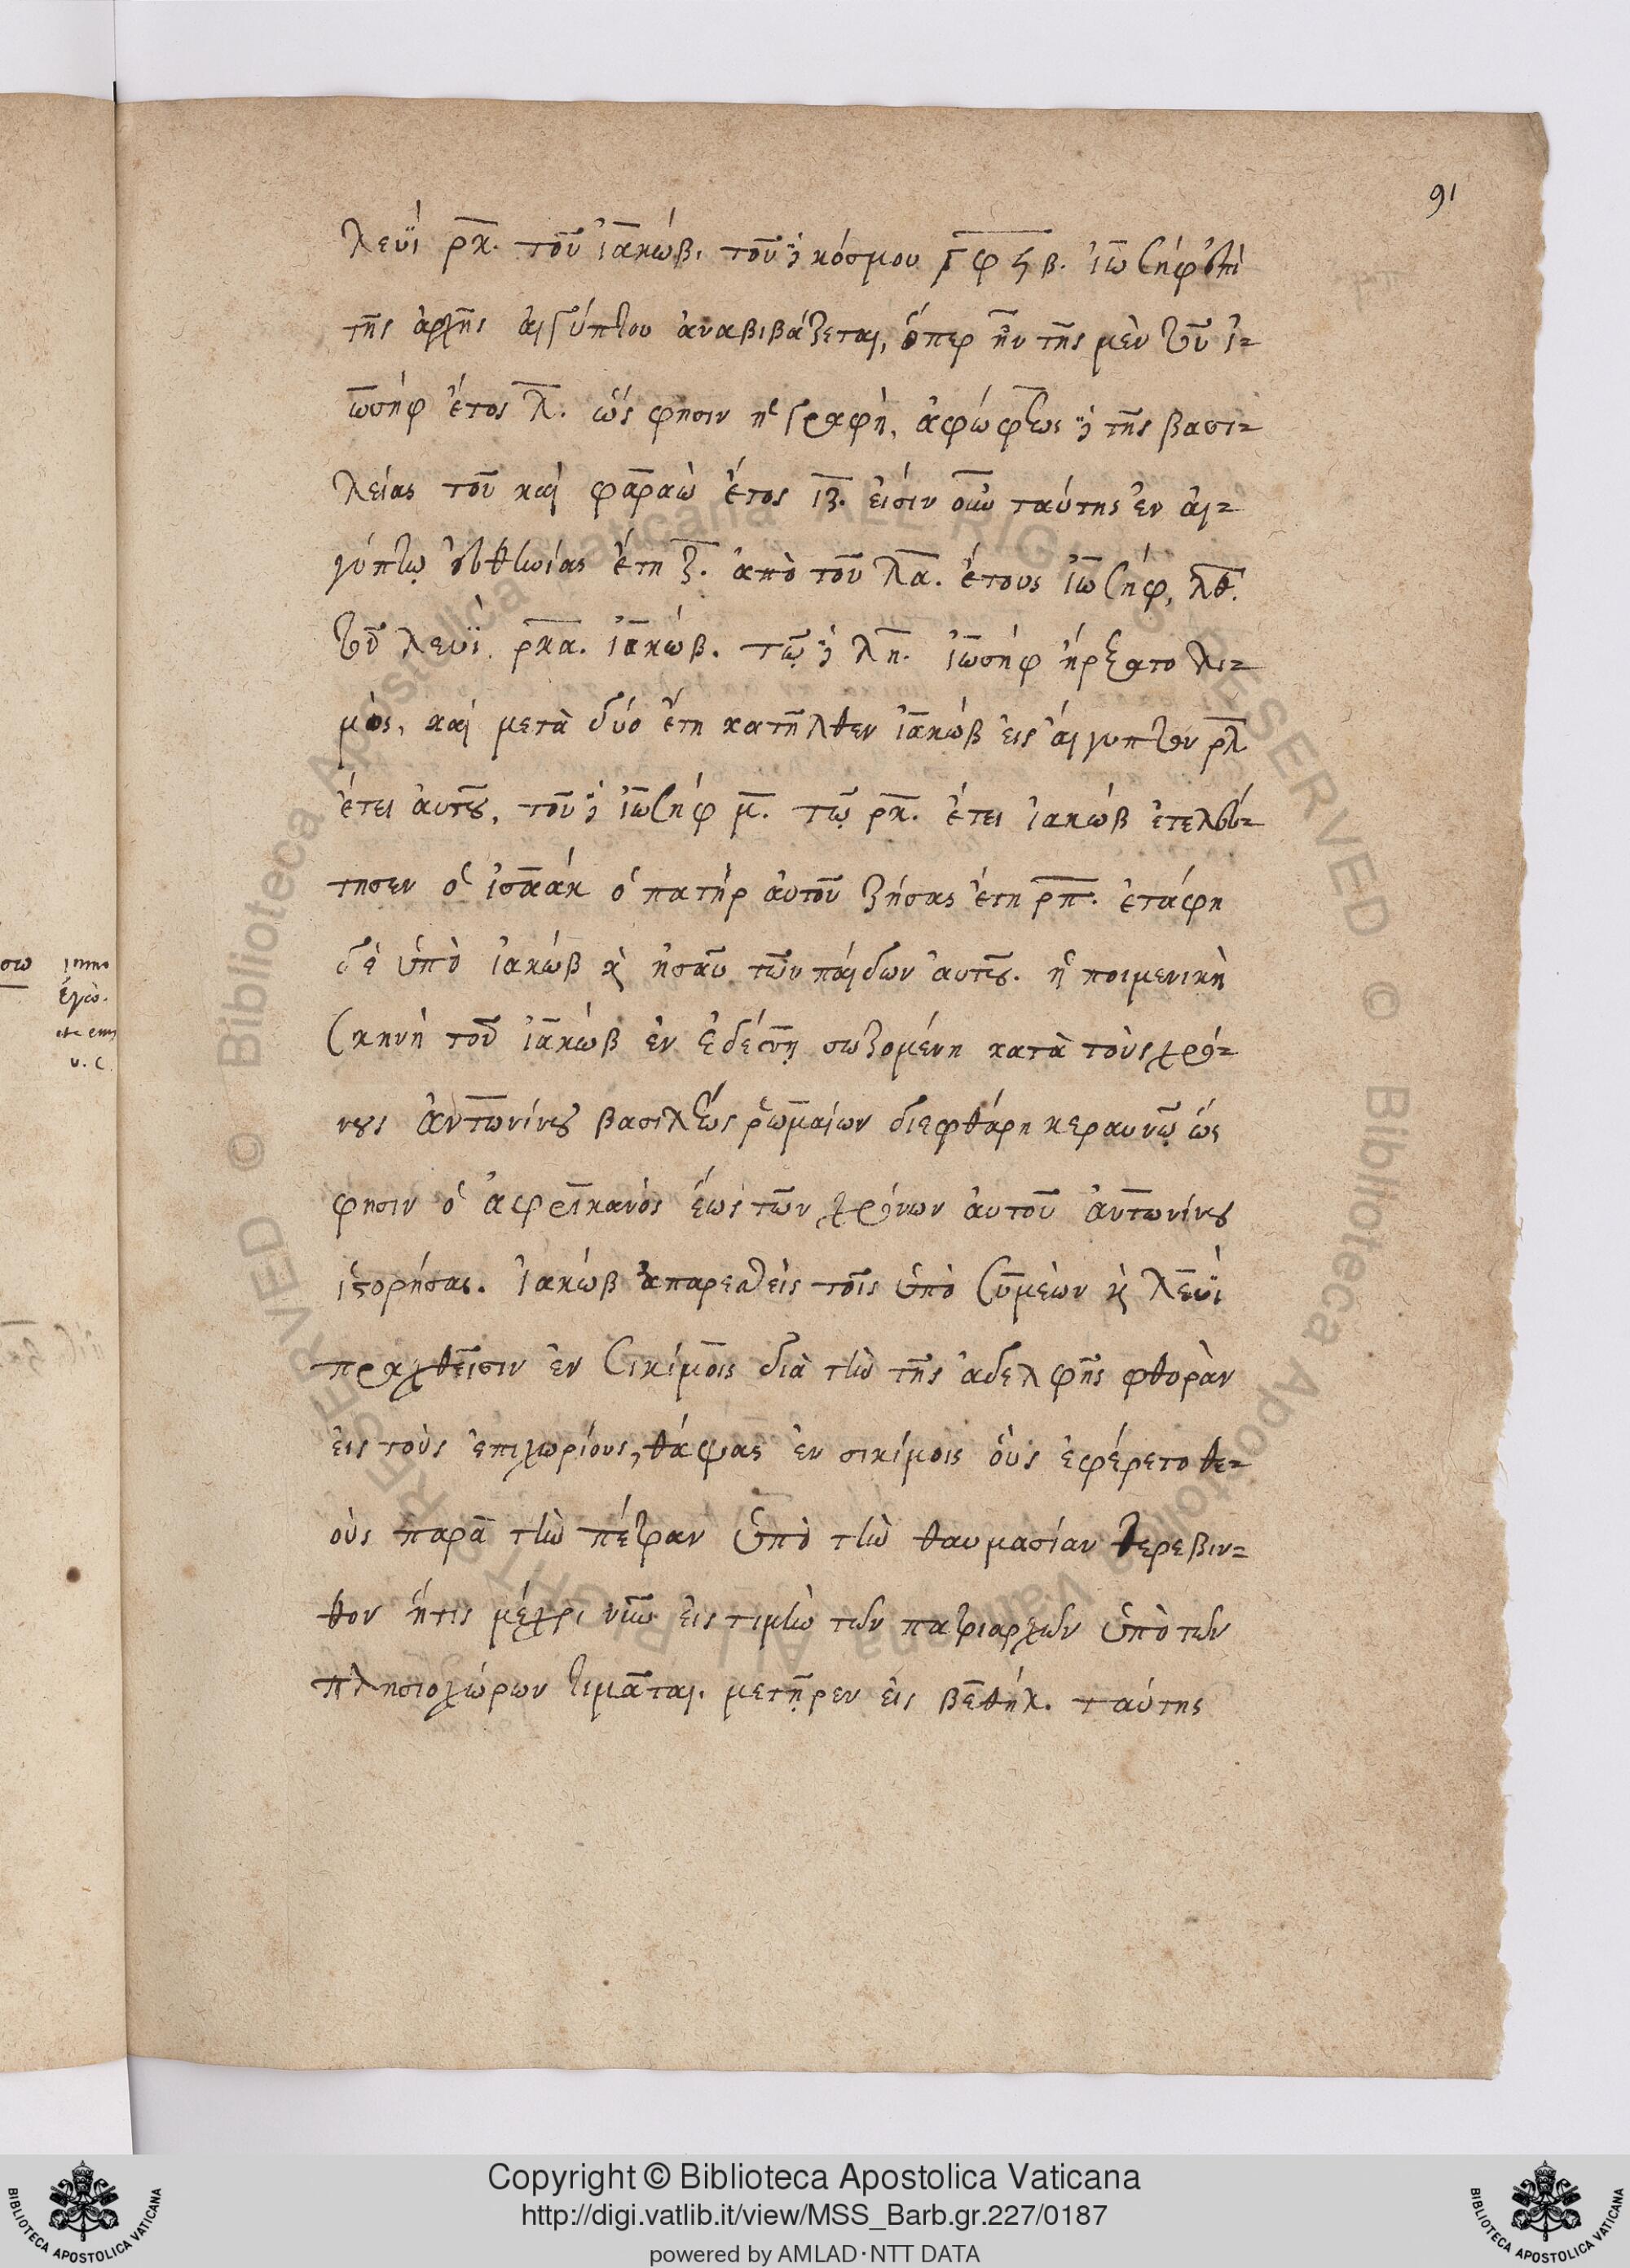 91
λευΐ ρ̅κ̅. τοῦ ἰακώβ. τοῦ δὲ κόσμου γ̅φ̅ϟ̅β̅. ἰωσὴφ ἐπὶ
τῆς ἀρχῆς αἰγύπτου ἀναβιβάζεται, ὅπερ ἦν τῆς μὲν τοῦ ἰ-
ωσήφ ἔτος λ̅. ὥς φησιν ἡ γραφὴ, ἀφώφεως δὲ τῆς βασι-
λείας τοῦ καὶ φαραὼ ἔτος ι̅ζ̅. εἰσὶν οὖν ταύτης ἐν αἰ-
γύπτῳ εὐθηνίας ἔτη ζ̅. ἀπὸ τοῦ λ̅α̅. ἔτους ἰωσήφ, λ̅θ̅.
τοῦ λευῒ. ρ̅κ̅α̅. ἰακώβ. τῷ δὲ λ̅η̅. ἰωσήφ ἤρξατο λι-
μὸς, καὶ μετὰ δύο ἔτη κατῆλθεν ἰακώβ εἰς αἴγυπτον ρ̅λ̅
ἔτει αὐτοῦ, τοῦ δὲ ἰωσήφ μ̅. τῷ ρ̅κ̅. ἔτει ἰακώβ ἐτελεύ-
τησεν ὁ ἰσαάκ ὁ πατὴρ αὐτοῦ ζήσας ἔτη ρ̅π̅. ἐτάφη
δὲ ὑπὸ ἰακώβ κ̀ ἠσαῦ τῶν παίδων αὐτοῦ. ἡ ποιμενικὴ
σκηνὴ τοῦ ἰακώβ ἐν ἐδέσῃ σωζομένη κατὰ τοὺς χρό-
νους ἀντωνίνου βασιλέως ῥωμαίων διεφθάρη κεραυνῷ ὥς
φησιν ὁ ἀφρικανὸς ἕως τῶν χρόνων αὐτοῦ ἀντωνίνου
ἱστορήσας. ἰακώβ ἀπαρεσθεὶς τοῖς ὑπὸ συμεὼν κ̀ λευΐ
πραχθεῖσιν ἐν σικίμοις διὰ τὴν τῆς ἀδελφῆς φθορὰν
εἰς τοὺς ἐπιχωρίους, θάψας ἐν σικίμοις οὓς ἐφέρετο θε-
οὺς παρὰ τὴν πέτραν ὑπὸ τὴν θαυμασίαν τερεβιν-
θον ἥτις μέχρι νῦν εἰς τιμὴν τῶν πατριαρχῶν ὑπὸ τῶν
πλησιοχώρων τιμᾶται. μετῇρεν εἰς βεθήλ. ταύτης
Copyright © Biblioteca Apostolica Vaticana
http://digi.vatlib.it/view/MSS_Barb.gr.227/0187
powered by AMLAD·NTT DATA